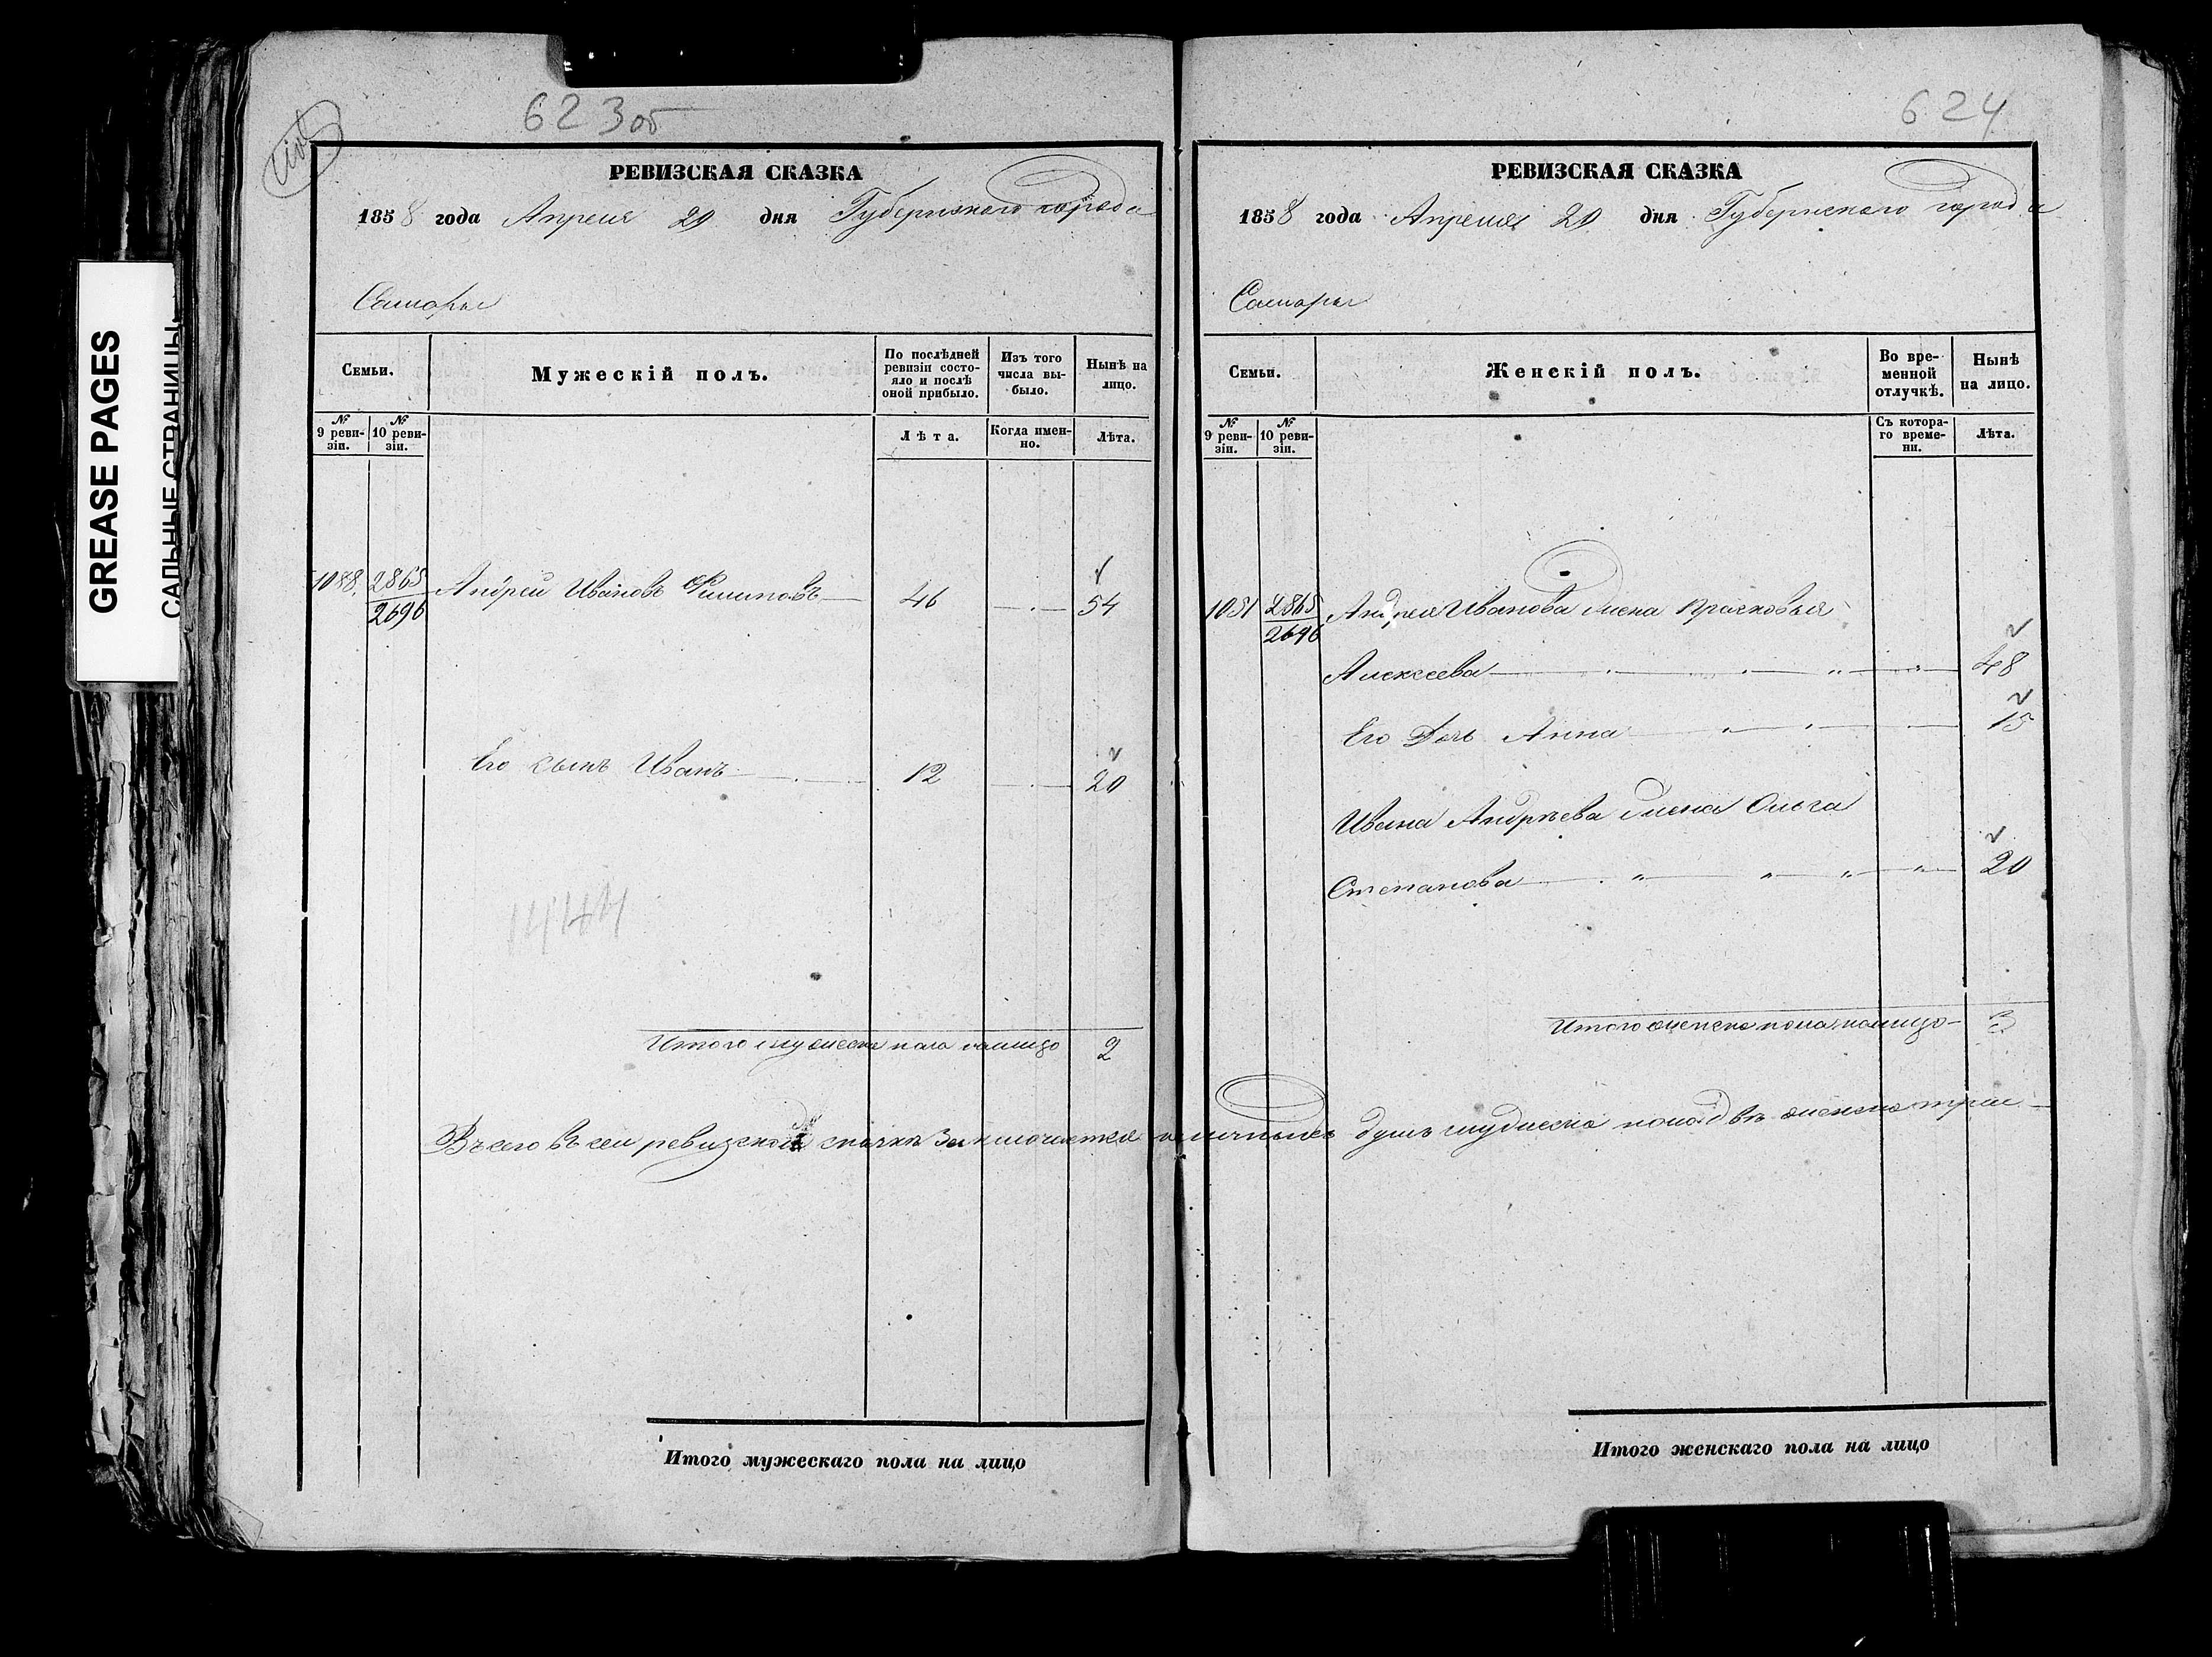 GREASE PAGES
САЛЬНЫЕ СТРАНИЦЫ
623об
РЕВИЗСКАЯ СКАЗКА
1858 года Апреля 20 дня Губернскаго города
Самары
Семьи.
Мужескій полъ.
По послѣдней ревизіи состояло и послѣ оной прибыло.
Изъ того числа выбыло.
Нынѣ на лицо.
№ 9 ревизіи.
№ 10 ревизіи.
Лѣта.
Когда именно.
Лѣта.
1088. 2865 Андрей Ивановъ Филиповъ 46 54
2696
Его сынъ Иванъ 12 20
1444
Итого мужеска пола налицо 2
Всего въ сей ревизской сказкѣ заключается наличныхъ душъ мужеска пола двѣ женска три
Итого мужескаго пола на лицо
624
РЕВИЗСКАЯ СКАЗКА
1858 года Апреля 20 дня Губернскаго города
Самары
Семьи.
Женскій полъ.
Во временной отлучкѣ.
Нынѣ на лицо.
№ 9 ревизіи.
№ 10 ревизіи.
Съ котораго времени.
Лѣта.
1051 2865 Андрея Иванова жена Прасковья
2696
Алексеева 48
Его Дочь Анна 15
Ивана Андрѣева жена Ольга
Степанова 20
Итого женска пола налицо 3
Итого женскаго пола на лицо